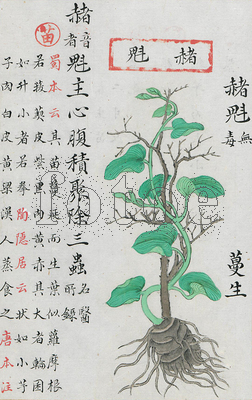 赭魁
赭魁 無毒
蔓生
苗
赭音者魁主心腹積聚除三蟲名醫所録
蜀本云其苗蔓延而生葉似蘿摩根
若菝葜皮紫黑肉黄赤其大者輪囷
如升小者若拳陶隱居云狀如小芋
子肉白皮黄梁漢人蒸食之唐本注
fotoe